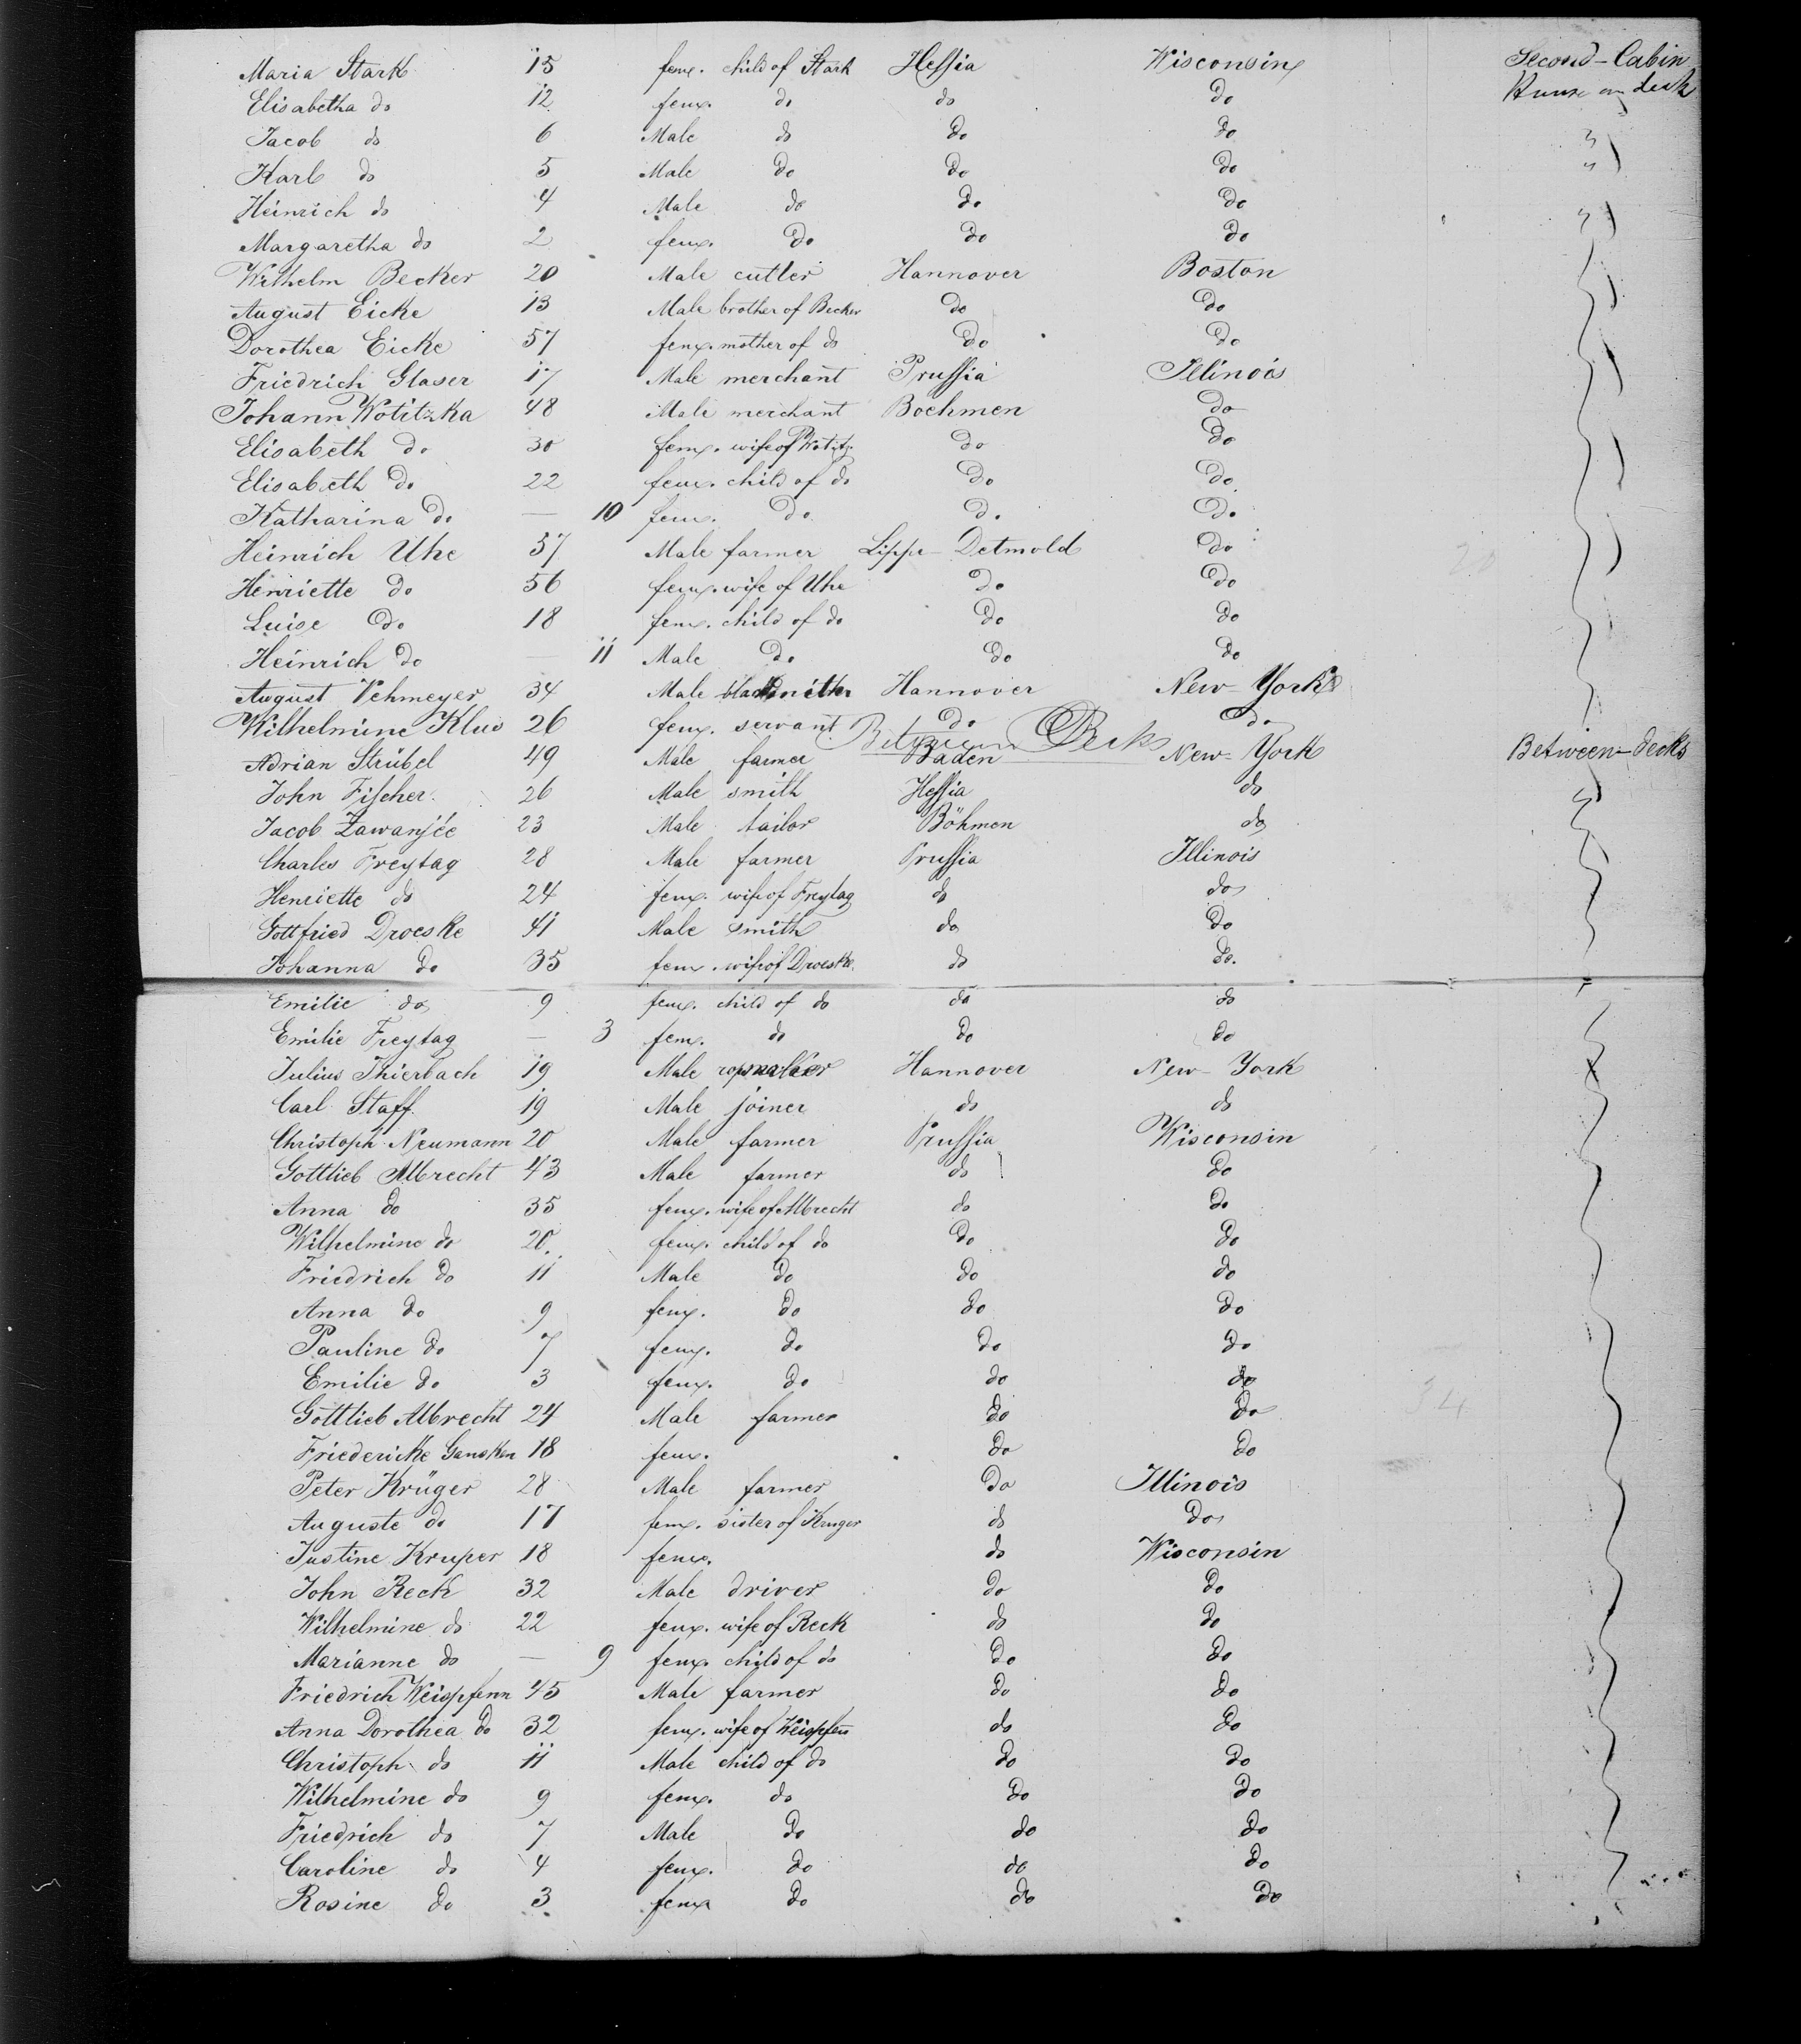 Maria Stark 15 fem. child of Stark Hessia Wisconsin Second-Cabin
Elisabetha do 12 fem. do do do on deck
Jacob do 6 Male do do do "
Karl do 5 Male do do do "
Heinrich do 4 Male do do do "
Margaretha do 2 fem. do do do
Wilhelm Becker 20 Male cutler Hannover Boston
August Eicke 13 Male brother of Becker do do
Dorothea Eicke 57 fem. mother of do do do
Friedrich Glaser 17 Male merchant Prussia Illinois
Johann Wotitzka 48 Male merchant Boehmen do
Elisabeth do 30 fem. wife of Wotitz. do do
Elisabeth do 22 fem. child of do do do
Katharina do — 10 fem. do do do
Heinrich Uhe 57 Male farmer Lippe-Detmold do
Henriette do 56 fem. wife of Uhe do do
Luise do 18 fem. child of do do do
Heinrich do — 11 Male do do do
August Vehmeyer 34 Male blacksmith Hannover New-York
Wilhelmine Klus 26 fem. servant do do
Between Decks
Adrian Strübel 49 Male farmer Baden New-York Between-decks
John Fischer 26 Male smith Hessia do "
Jacob Zawanjéc 23 Male tailor Böhmen do
Charles Freytag 28 Male farmer Prussia Illinois
Henriette do 24 fem. wife of Freytag do do
Gottfried Droeske 41 Male smith do do
Johanna do 35 fem. wife of Droeske do do.
Emilie do 9 fem. child of do do do
Emilie Freytag — 3 fem. do do do
Julius Thierbach 19 Male ropmaker Hannover New-York
Carl Staff 19 Male joiner do do
Christoph Neumann 20 Male farmer Prussia Wisconsin
Gottlieb Albrecht 43 Male farmer do do
Anna do 35 fem. wife of Albrecht do do
Wilhelmine do 20 fem. child of do do do
Friedrich do 11 Male do do do
Anna do 9 fem. do do do
Pauline do 7 fem. do do do
Emilie do 3 fem. do do do
Gottlieb Albrecht 24 Male farmer do do 34
Friedericke Gensken 18 fem. do do
Peter Krüger 28 Male farmer do Illinois
Auguste do 17 fem. sister of Kruger do do
Justine Kruper 18 fem. do Wisconsin
John Reck 32 Male driver do do
Wilhelmine do 22 fem. wife of Reck do do
Marianne do — 9 fem. child of do do do
Friedrich Weispfenn 45 Male farmer do do
Anna Dorothea do 32 fem. wife of Weispfen do do
Christoph do 11 Male child of do do do
Wilhelmine do 9 fem. do do do
Friedrich do 7 Male do do do
Caroline do 4 fem. do do do
Rosine do 3 fem do do do